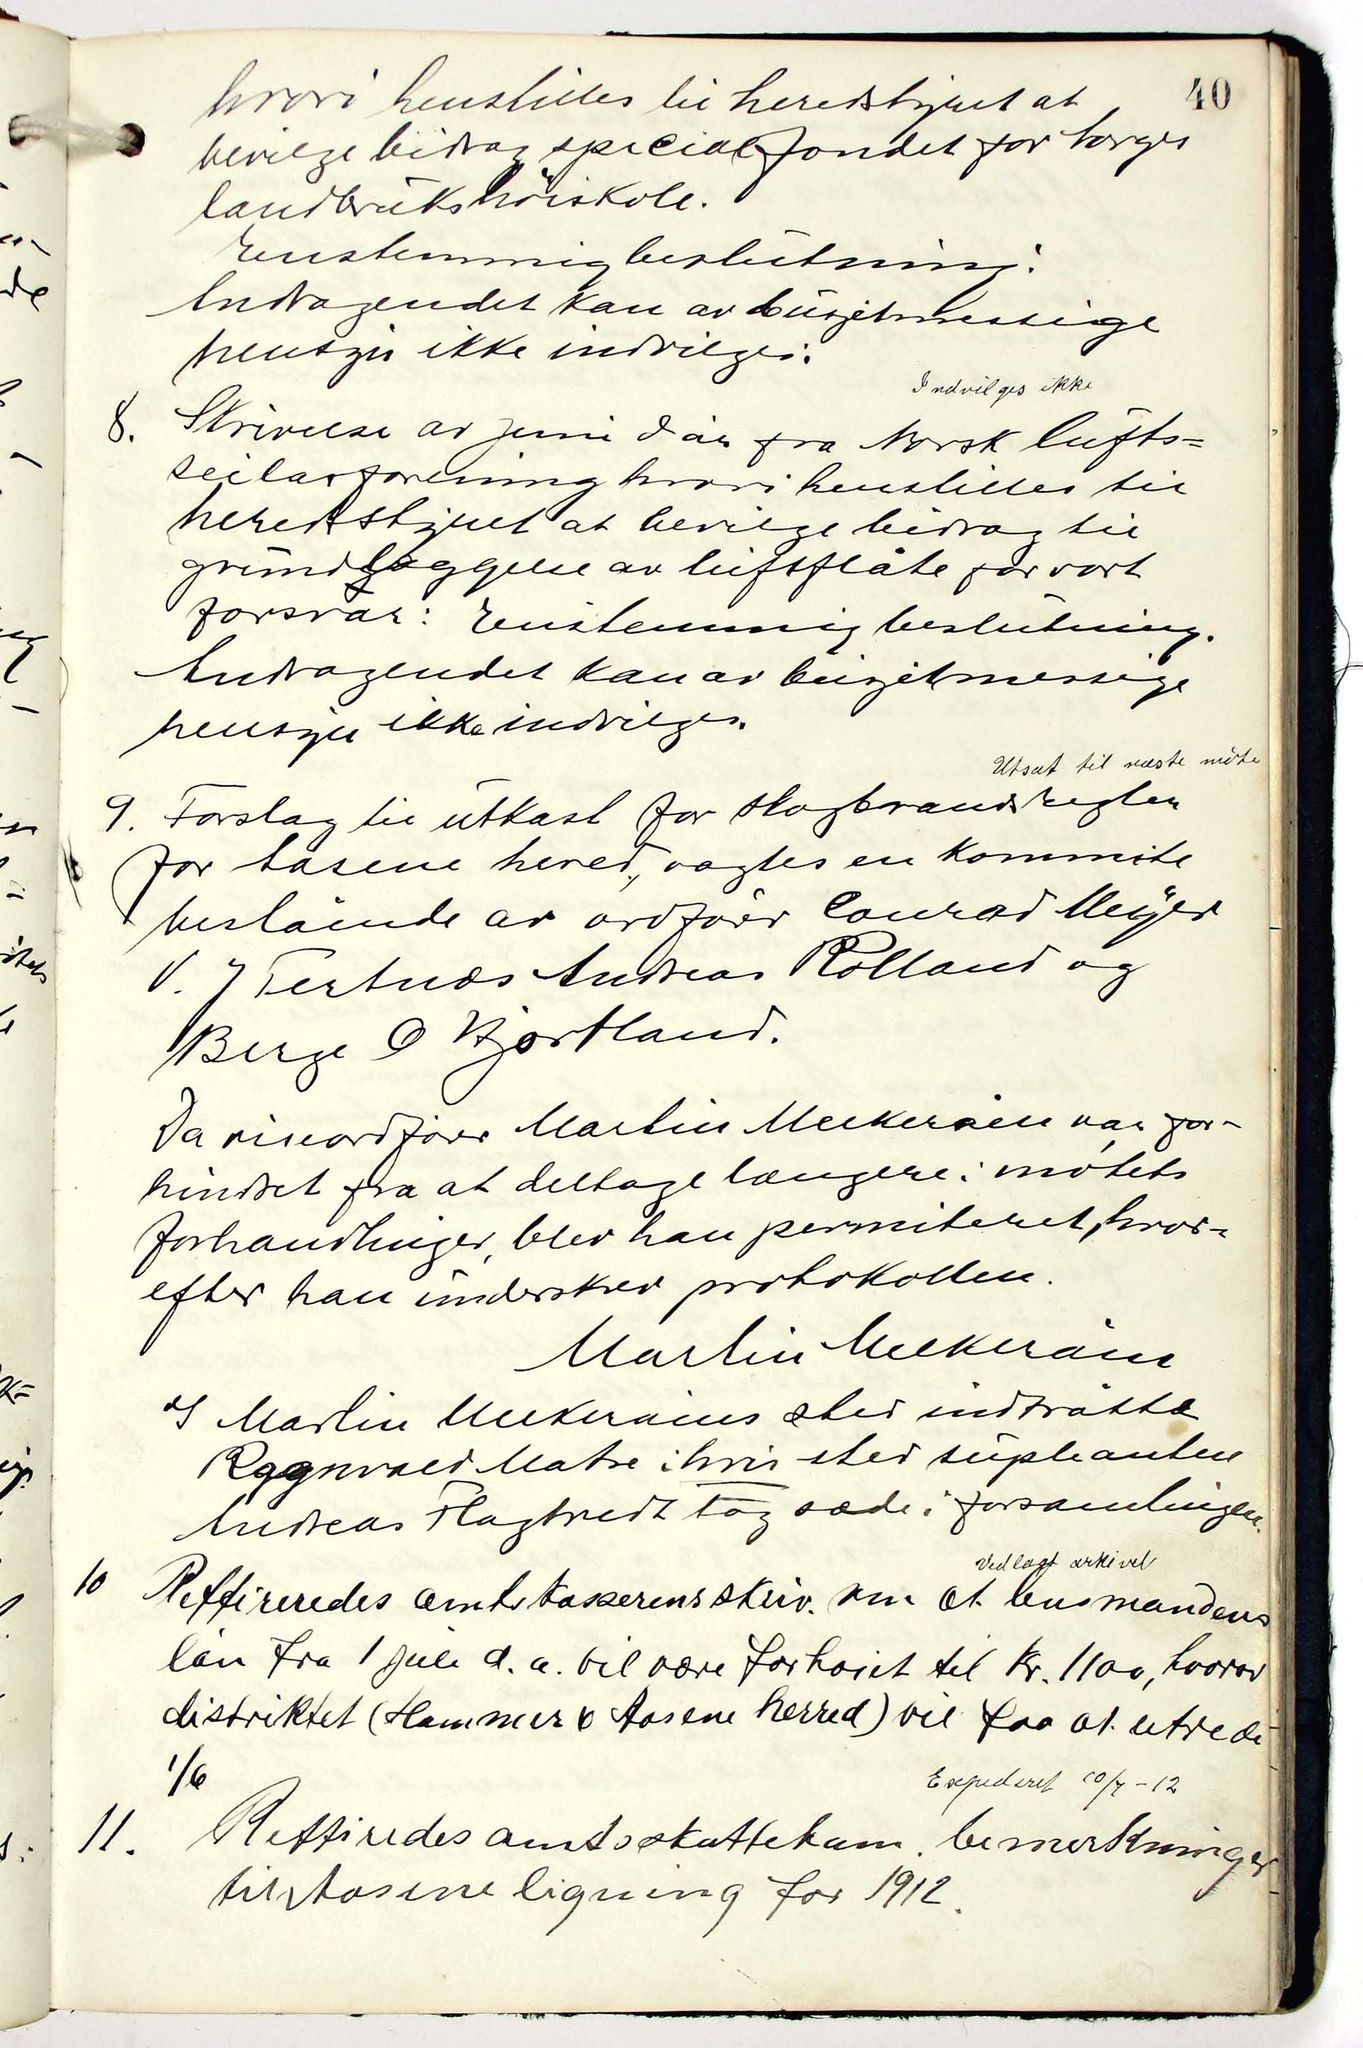 40
hvori henstilles til heredstyret at
bevilge bidrag specialfondet for Norges
landbrukshöiskole.
Enstemmig beslutning:
Andragendet kan av budgetmessige
hensyn ikke indvilges.
Indvilges ikke
8. Skrivelse av juni d år fra Norsk lufts=
seilasforening hvori henstilles til
heredstyret at bevilge bidrag til
grundlæggelse av luftflåte for vort
forsvar: Enstemmig beslutning.
Andragendet kan av budgetmessige
hensyn ikke indvilges.
Utsat til næste möte
9. Forslag til utkast for skogbrandregler
for Aasene hered, valgtes en kommite
bestående av ordförer Conrad Meÿer
V. J Tertnæs Andreas Rolland og
Berge O Hjortland.
Da viseordförer Martin Mukeråen var for-
hindret fra at deltage længere i mötets
forhandlinger, blev han permiteret, hvor-
efter han underskrev protokollen.
Martin Mukeråen
I Martin Mukeråens sted indtråtte
Ragnvald Matre i hvis sted supleanten
Andreas Flagtvedt tog sæde i forsamlingen.
Vedlagt arkivet
10 Reffereredes amtskasserens skriv. om at lensmandens
lön fra 1 juli d. a. vil være forhöiet til kr. 1100, hvorav
distriktet (Hammer & Aasene herred) vil faa at utrede
1/6
Expederet 10/7-12
11. Reffiredes amtsskattekom. bemerkninger
til Aasene ligning for 1912.